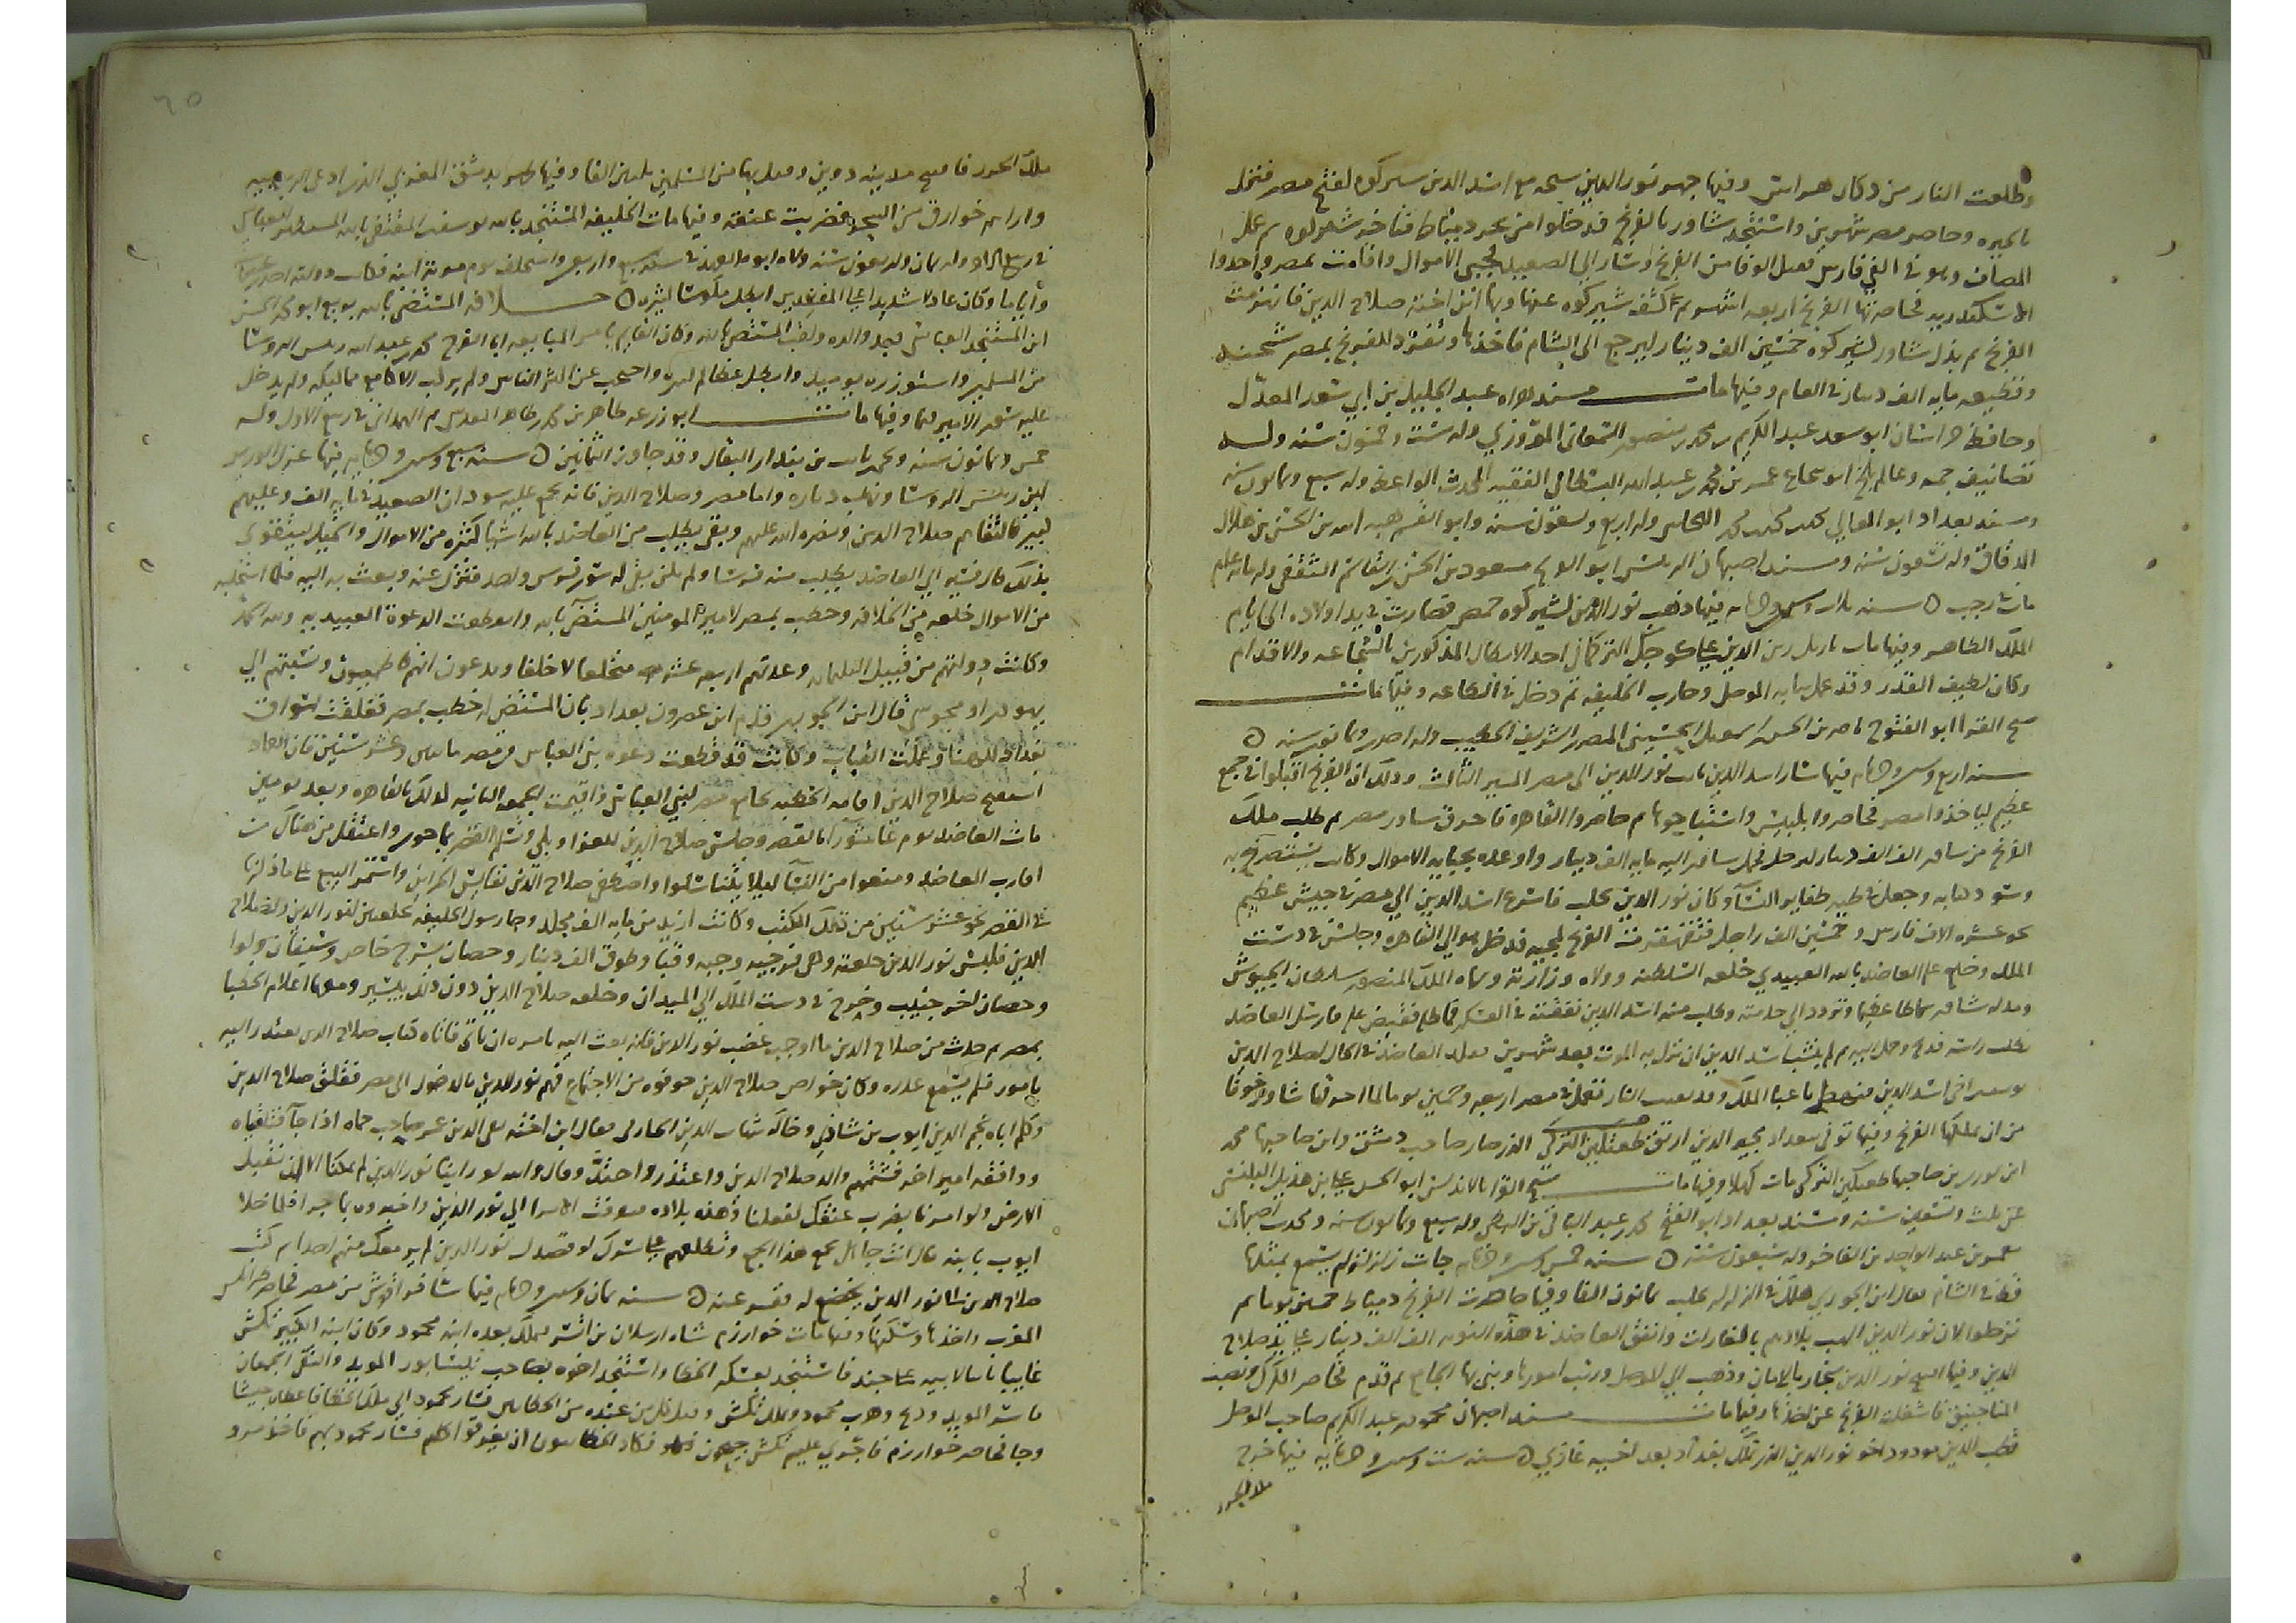 وطلعت النار من دكان هراس وفيها جهز نور الدين جيشه مع اسد الدين شيركوه لفتح مصر فنزل
بالجيزه وحاصر مصر شهرين واستنجد شاور بالفرنج فدخلوا من بحر دمياط
المصاف وهو في الفي فارس فقتل الوفا من الفرنج وسار الى الصعيد فجبى الاموال واقامت بمصر واخذوا
الاسكندريه فحاصرتها الفرنج اربعه اشهر ثم كشف شيركوه عنها وبها ابن اخته صلاح الدين
الفرنج ثم بذل شاور لشيركوه خمسين الف دينار ليرجع الى الشام فاخذها وتقرر للفرنج بمصر شحنه
وقطيعه مايه الف دينار في العام وفيها مات مسند هراه عبد الجليل بن ابي سعد المعدل
وحافظ خراسان ابو سعد عبد الكريم بن محمد بن منصور السمعاني المروزي وله ست وخمسون سنه وله
تصانيف جمه وعالم بلخ ابو شجاع عمر بن محمد بن عبد الله البسطامي الفقيه المحدث الواعظ وله سبع وثمانون سنه
ومسند بغداد ابو المعالي محمد بن محمد بن محمد وله اربع وسبعون سنه وابو القسم هبه الله بن الحسن بن هلال
الدقاق وله تسعون سنه ومسند اصبهان الرئيس ابو الفرج مسعود بن الحسن بن القاسم الثقفي وله مايه عام
مات رجب سنه ثلاث وستين وخمسمايه فيها وهب نور الدين لشيركوه حمص فصارت في يد اولاده الى ايام
الملك الظاهر وفيها مات باربل زين الدين علي كوجك التركماني احد الابطال المذكورين بالشجاعه والاقدام
وكان لطيف القدر وقد عمل نيابه الموصل وحارب الخليفه ثم دخل في الطاعه وفيها مات
شيخ القرا ابو الفتوح ناصر بن الحسن بن اسمعيل الحسيني المصري الشريف الخطيب وله احدى وثمانون سنه
سنه اربع وستين وخمسمايه فيها سار اسد الدين نايب نور الدين الى مصر المسير الثالث وذلك ان الفرنج اقبلوا في جمع
عظيم لياخذوا مصر فحاصروا بلبيس واستباحوها ثم حاصروا القاهره فاحرق شاور مصر ثم طلب ملك
الفرنج من شاور الف الف دينار ليرحل فحمل شاور اليه مايه الف دينار واوعده بجبايه الاموال وكاتب يستصرخ به
وسود كتابه وجعل في طيه ظفاير النسا وكان نور الدين بحلب فاسرع اسد الدين الى مصر في جيش عظيم
نحو عشره الاف فارس وخمسين الف راجل فتقهقرت الفرنج لمجيه فدخل هو الى القاهره وجلس في دست
الملك وخلع عليه العاضد بالله العبيدي خلعه السلطنه وولاه وزارته وسماه الملك المنصور سلطان الجيوش
ومد له شاور سماطا عظيما وتردد الى خدمته وطلب منه اسد الدين نفقته في العسكر فماطله فقبض عليه فارسل العاضد
يطلب راسه فذبح وحمل اليه ثم لم ينشب اسد الدين ان نزل به الموت بعد شهرين فقلد العاضد في الحال لصلاح الدين
من ان يملكها الفرنج وفيها توفي ببغداد مجير الدين ابق بن طغتكين التركي الذي صار صاحب دمشق وابن صاحبها محمد
ابن بوري بن صاحبها طغتكين التركي مات كهلا وفيها مات شيخ القرا بالاندلس ابو الحسن علي بن هذيل البلنسي
عن ثلث وتسعين سنه ومسند بغداد ابو الفتح محمد بن عبد الباقي بن البطي وله سبع وثمانون سنه ومحدث اصبهان
معمر بن عبد الواحد بن الفاخر وله سبعون سنه سنه خمس وستين وخمسمايه جات زلزله لم يسمع بمثلها
قط في الشام فقال ابن الجوزي هلك في الزلزله بحلب ثمانون الفا وفيها حاصرت الفرنج دمياط خمسين يوما ثم
ترحلوا لان نور الدين الهب بلادهم بالغارات وانفق العاضد في هذه النوبه الف الف دينار على يد صلاح
الدين وفيها افتتح نور الدين سنجار بالامان وذهب الى الموصل ورتب امورها وبنى بها الجامع ثم قدم فحاصر الكرك ونصب
المناجنيق فاشغلته الفرنج عن اخذها وفيها مات مسند اصبهان محمود بن عبد الكريم صاحب الموصل
قطب الدين مودود اخو نور الدين الذي تملك بعد اخيه غازي سنه ست وستين وخمسمايه فيها خرج
ملك الخزر
٦٥
ملك الخزر فافتتح مدينه دوين وقتل بها من المسلمين ثلثين الفا وفيها ظهر بدمشق المغربي الذي ادعى الربوبيه
واراهم خوارق من السحر فضربت عنقه وفيها مات الخليفه المستنجد بالله يوسف بن المقتفي بالله بن المستظهر العباسي
في ربيع الاخر وله ثمان واربعون سنه ولاه ابوه العهد في سنه سبع واربعين واستخلف يوم موته ابنه فكانت دولته احدى عشر سنه
واياما وكان عادلا شديدا على المفسدين ابطل مكوسا كثيره خلافه المستضي بالله بويع ابو محمد الحسن
ابن المستنجد العباسي بعد والده ولقب المستضي بالله وكان القايم بامر المبايعه ابا الفرج محمد بن عبد الله بن رئيس الروسا
من السلميه واستوزره يوميذ وابطل مظالم كثيره واحتجب عن اكثر الناس ولم يركب الا مع مماليكه ولم يدخل
عليه سوى الامير قيماز وفيها مات ابو زرعه طاهر بن محمد بن طاهر المقدسي ثم الهمداني في ربيع الاول وله
خمس وثمانون سنه ويحيى بن ثابت بن بندار البقال وقد جاوز الثمانين سنه سبع وستين وخمسمايه فيها عزل الوزير
ابن رئيس الروسا ونهبت دياره واما مصر وصلاح الدين فانه تجمع عليه سودان الصعيد في مايه الف وعليهم
كبير فالتقاهم صلاح الدين ونصره الله عليهم وبقي يطلب من العاضد بالله اشيا كثيره من الاموال والخيل ليتقوى
بذلك قال فسير الى العاضد يطلب منه فرسا ولم يكن بقي له سوى فرس واحد فنزل عنه وبعث به اليه
من الاموال خلعه من الخلافه وخطب بمصر لامير المومنين المستضي بالله وانقطعت الدعوة العبيديه ولله الحمد
وكانت دولتهم من قبيل وعدتهم اربعه عشر متخلفا لا خلفا ويدعون انهم فاطميون ونسبتهم الى
يهودي او مجوسي قال ابن الجوزي قدم ابن عصرون بغداد بان المستضي خطب بمصر فغلقت اسواق
بغداد للهنا وعملت القباب وكانت قد قطعت دعوه بني العباس من مصر مايتين وعشر سنين قال العماد
استفتح صلاح الدين اقامه الخطبه بجامع مصر لبني العباس واقيمت الجمعه الثانيه كذلك بالقاهره وبعد يومين
مات العاضد يوم عاشورا بالقصر وجلس صلاح الدين للعزا وبكى وتسلم القصر بما حوى واعتقل من هناك من
اقارب العاضد ومنعوا من النسا ليلا يتناسلوا واصطفى صلاح الدين نفايس الخزاين واستمر البيع على ما ذكر
في القصر نحو عشر سنين من تلك الكتب وكانت ازيد من مايه الف مجلد وجا رسول الخليفه بخلعتين لنور الدين ولصلاح
الدين فلبس نور الدين خلعته وهي فرجيه وجبه وقبا وطوق الف دينار وحصان بسرج خاص وسيفان ولوا
وحصان اخر جنيب وخرج في دست الملك الى الميدان وخلعه صلاح الدين دون ذلك بيسير ومعهما اعلام الخطبا
بمصر ثم حدث من صلاح الدين ما اوجب غضب نور الدين فانه بعث اليه يامره ان ياتي فاتاه كتاب صلاح الدين يعتذر اليه
بامور فلم يسمع عذره وكان خواص صلاح الدين خوفوه من الاجتماع فهم نور الدين بالدخول الى مصر فقلق صلاح الدين
وكلم اباه نجم الدين ايوب بن شاذي وخاله شهاب الدين الحارمي فقال ابن اخته تقي الدين عمر صاحب حماه اذا جا قاتلناه
ووافقه امير اخر فشتمهم والد صلاح الدين واعتذر واحتد وقال والله لو راينا نور الدين لم يمكنا الا ان نقبل
الارض ولو امرنا بضرب عنقك لفعلنا وهذه بلاده فبعث الامرا الى نور الدين واخبروه بما جرا فلما خلا
ايوب بابنه قال انت جاهل تجمع هذا الجمع وتطلعهم على سرك لو قصدك نور الدين لم ير معك منهم احدا ثم كتب
صلاح الدين الى نور الدين يخضع له فقصر عنه سنه ثمان وستين وخمسمايه فيها سار قراقوش من مصر فحاصر طرابلس
المغرب واخذها وسكنها وفيها مات خوارزم شاه ارسلان بن اتسز فملك بعده ابنه محمود وكان ابنه الكبير تكش
غايبا نايبا لابيه على جند فاستنجد بعسكر الخطا واستنجد اخوه بصاحب نيسابور المويد والتقى الجمعان
فاسر المويد وذبح وهرب محمود وتملك تكش وقتل كل من عنده من الخطا فسار محمود الى ملك الخطا فاعطاه جيشا
وجا فحاصر خوارزم فاجرى عليهم تكش جيحون فكاد الخطا ان يغرقوا كلهم فسار محمود بهم فاخذ مرو